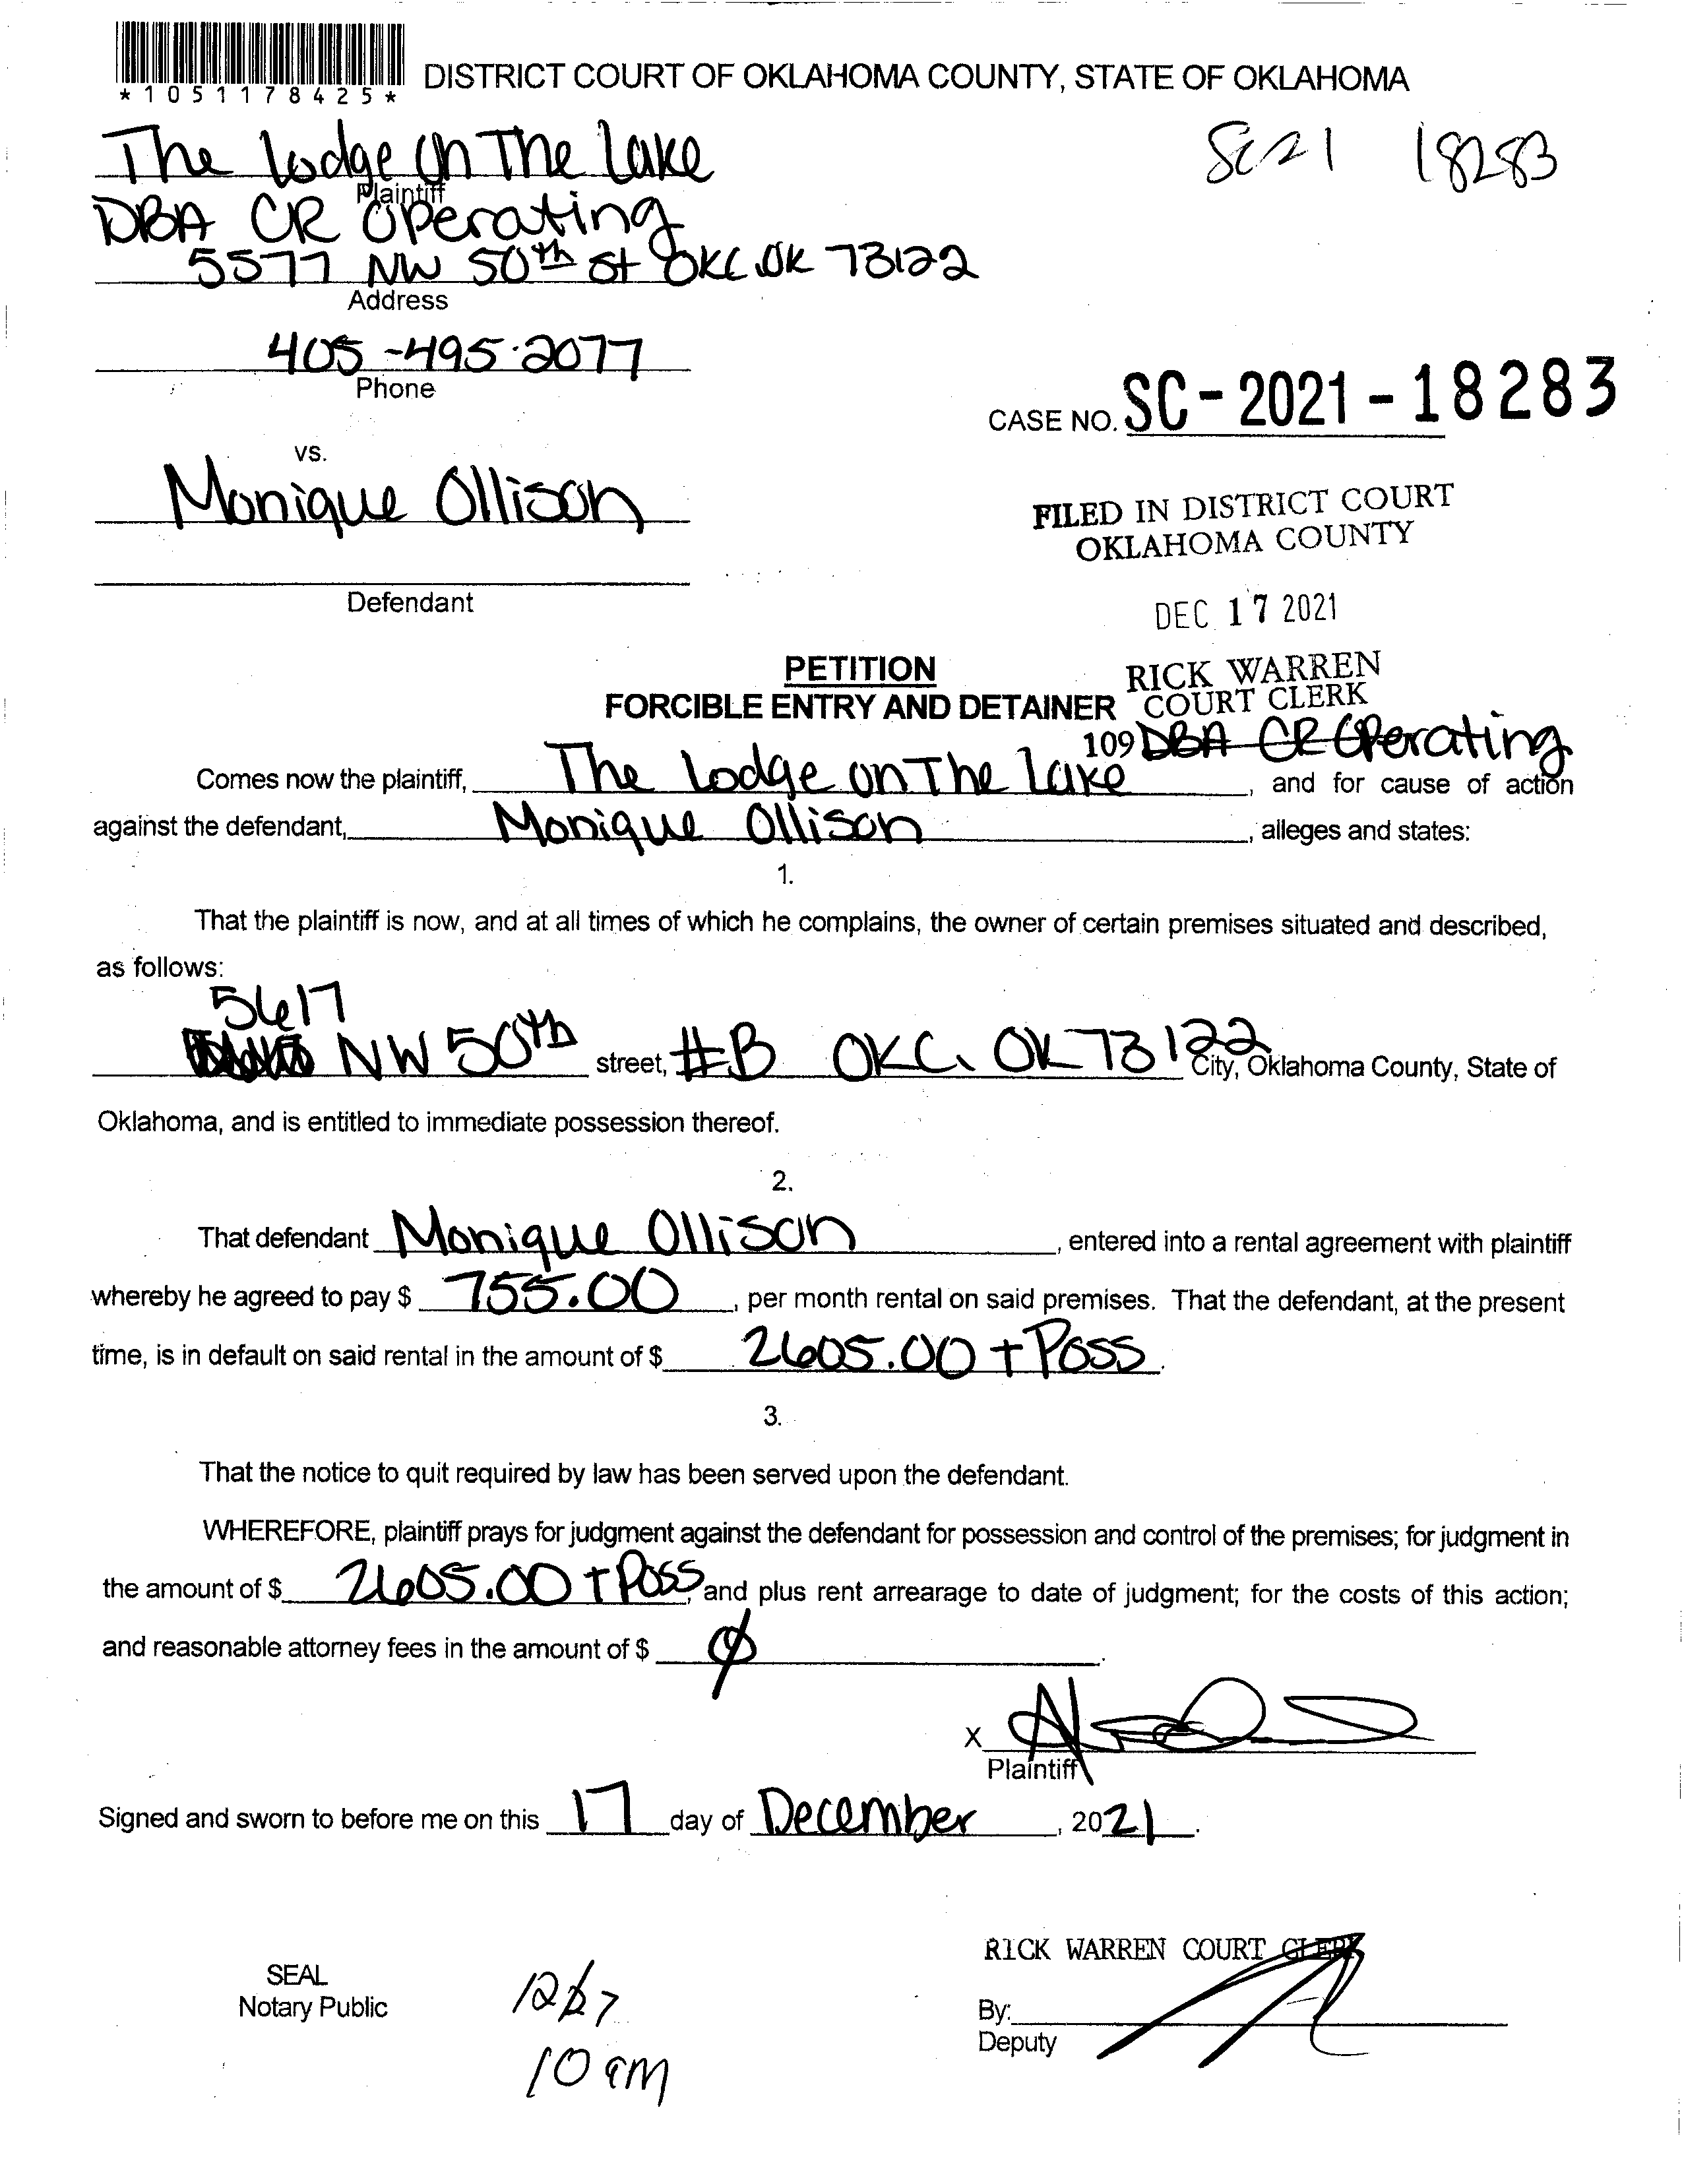 *1051178425*
DISTRICT COURT OF OKLAHOMA COUNTY, STATE OF OKLAHOMA
The Lodge on The Lake
Plaintiff
SC21 18283
DBA CR Operating
5577 NW 50th St OKC OK 73122
Address
405-495-2077
Phone
CASE NO. SC-2021-18283
vs.
Monique Ollison
Defendant
FILED IN DISTRICT COURT
OKLAHOMA COUNTY
DEC 17 2021
RICK WARREN
COURT CLERK
109
PETITION
FORCIBLE ENTRY AND DETAINER
DBA CR Operating
Comes now the plaintiff, The Lodge on The Lake, and for cause of action
against the defendant, Monique Ollison, alleges and states:
1.
That the plaintiff is now, and at all times of which he complains, the owner of certain premises situated and described,
as follows:
5617
NW 50th street, #B OKC, OK 73122 City, Oklahoma County, State of
Oklahoma, and is entitled to immediate possession thereof.
2.
That defendant Monique Ollison, entered into a rental agreement with plaintiff
whereby he agreed to pay $ 755.00, per month rental on said premises. That the defendant, at the present
time, is in default on said rental in the amount of $ 2605.00 + Poss.
3.
That the notice to quit required by law has been served upon the defendant.
WHEREFORE, plaintiff prays for judgment against the defendant for possession and control of the premises; for judgment in
the amount of $ 2605.00 + Poss, and plus rent arrearage to date of judgment; for the costs of this action;
and reasonable attorney fees in the amount of $ ϕ.
X
Plaintiff
Signed and sworn to before me on this 17 day of December, 2021.
RICK WARREN COURT CLERK
SEAL
Notary Public
12/27
10 am
By:
Deputy